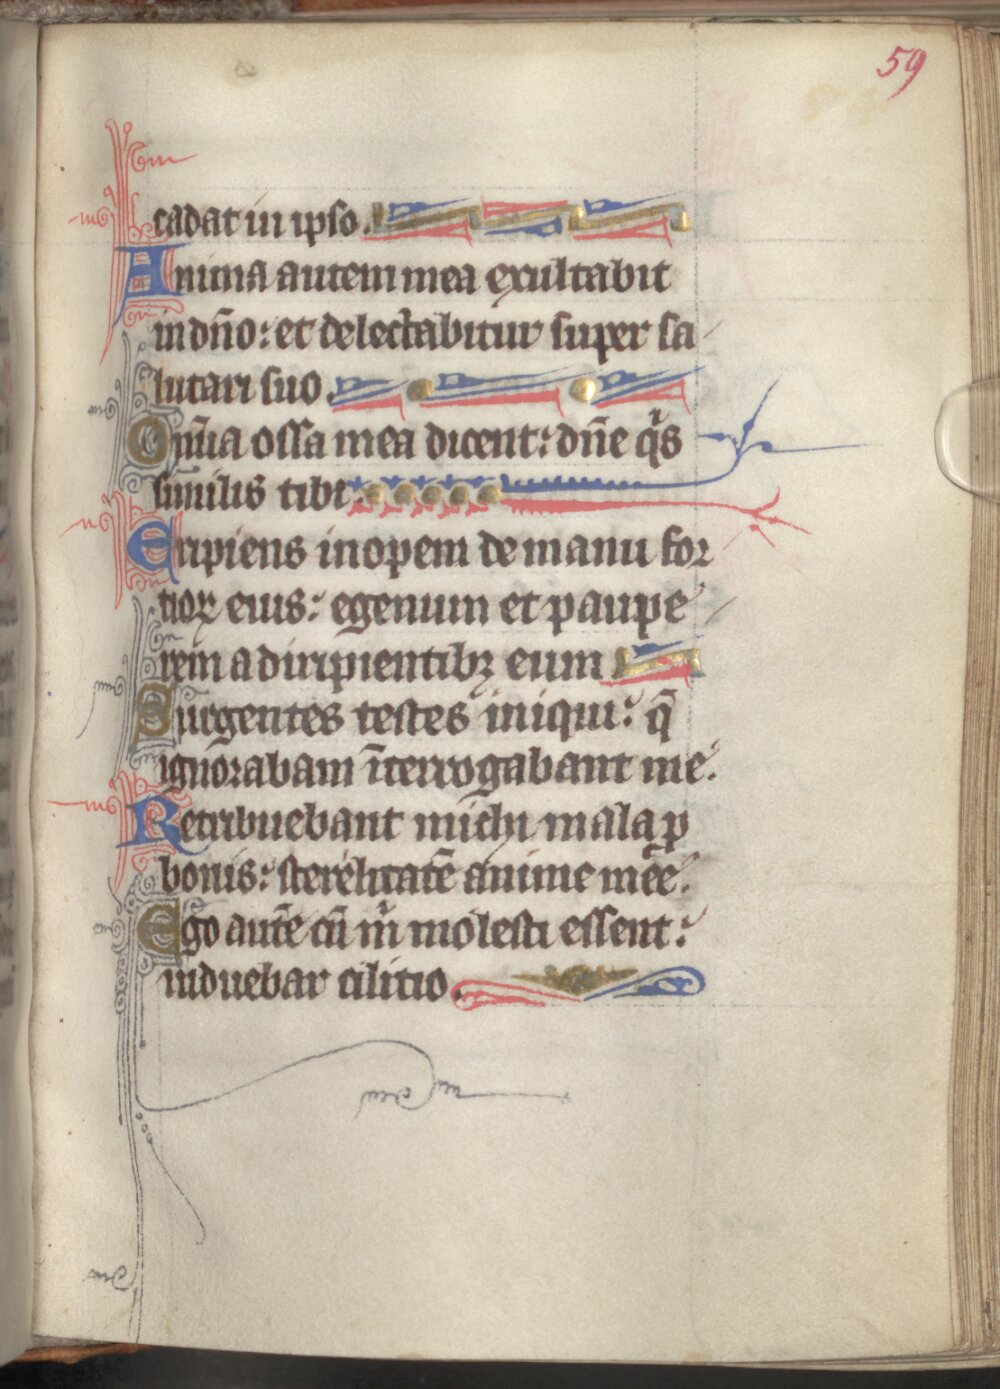 59
cadat in ipso.
Anima autem mea exultabit
in dn̄o: et delectabitur super sa
lutari suo.
Om̄ia ossa mea dicent: dn̄e qͥs
similis tibi:
Eripiens inopem de manu for
tioꝝ eius: egenum et paupe
rem a diripientibꝫ eum
Surgentes testes iniqui: q̄
ignorabam īterrogabant me.
Retribuebant michi mala ꝓ
bonis: sterelitatē anime mee.
Ego autē cū m̄ molesti essent:
induebar cilitio.